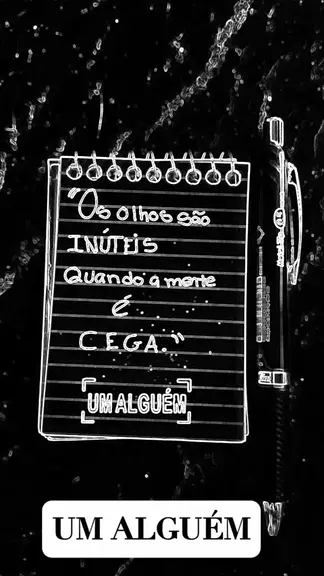 "Os olhos são
INÚTEIS
Quando a mente
é
C.E.G.A."
UM ALGUÉM
UM ALGUÉM